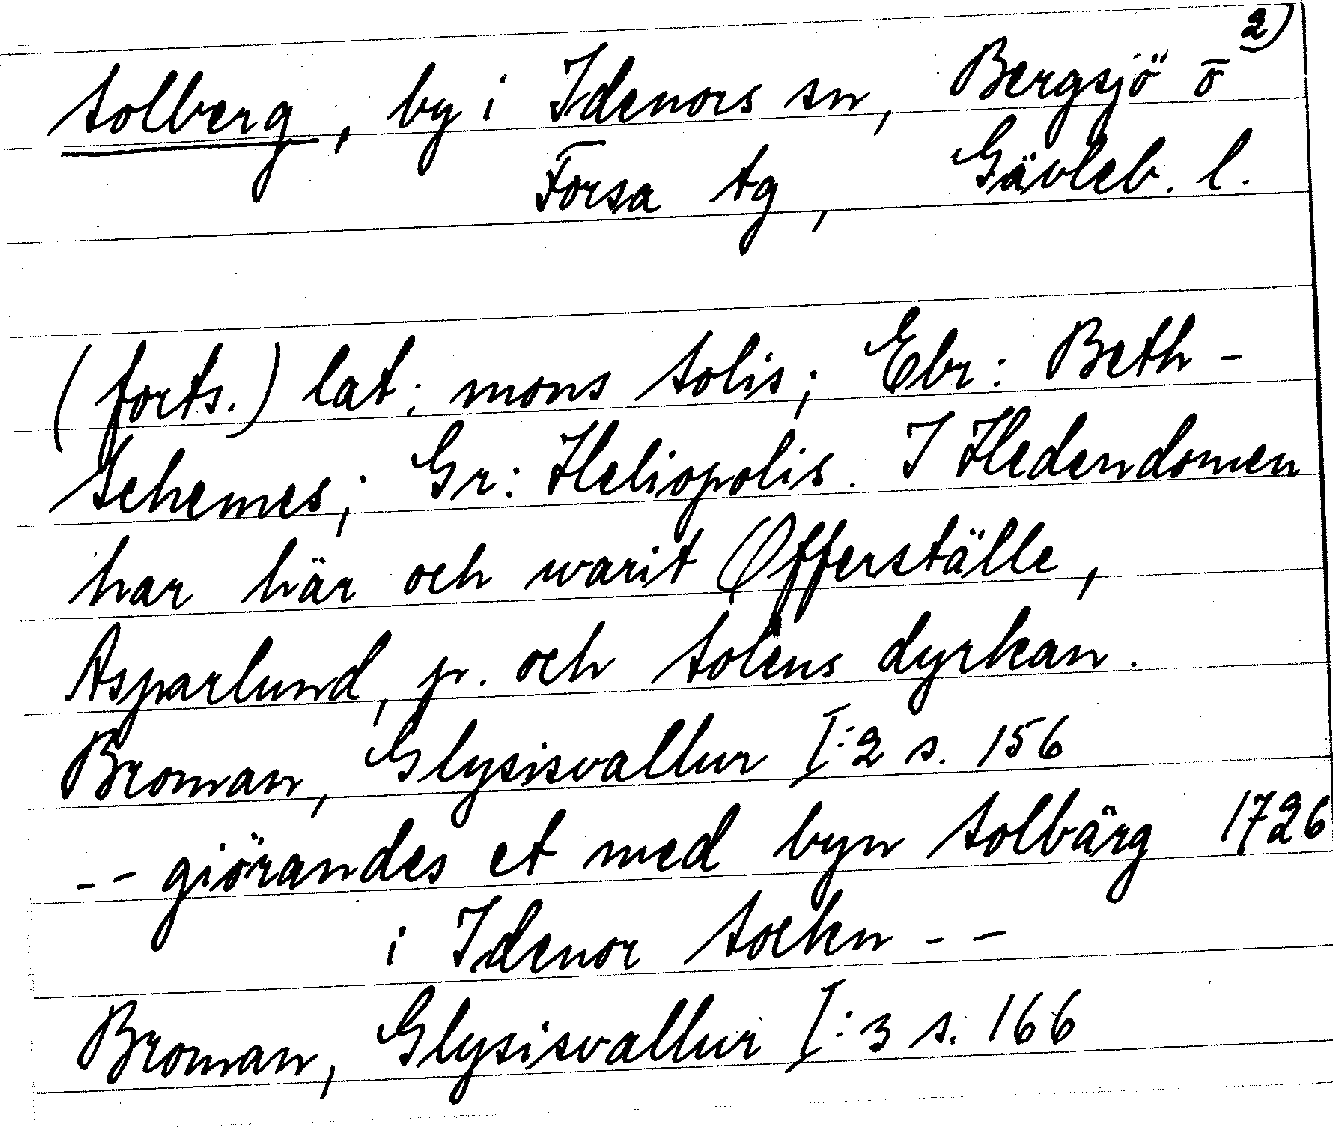 2)
Solberg, by i Idenors sn, Bergsjö o
Forsa tg, Gävleb. l.
(forts.) lat: mons Solis; Ebr: Beth-
Schemes; Gr: Heliopolis. I Hedendomen
har här och warit Offerställe,
Asparlund, p. och Solens dyrkan.
Broman, Glysisvallur I:2 s. 156
-- giörandes et med byn Solbärg 1726
i Idenor Sockn --
Broman, Glysisvallur I:3 s. 166